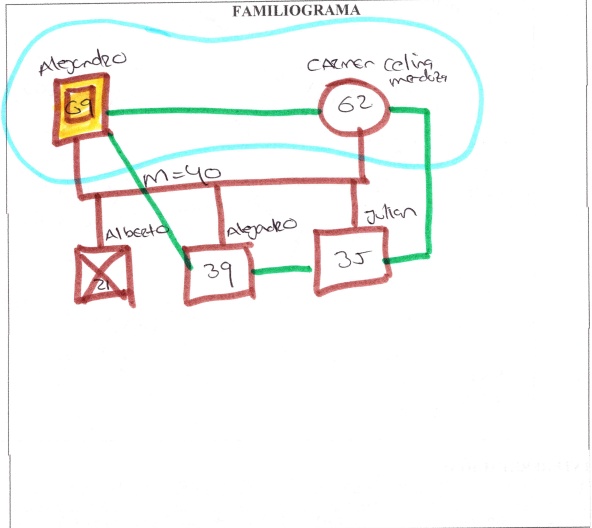 FAMILIOGRAMA
Alejandro
CARMEN Celina
mendoza
69
62
M=40
Alberto
Alejandro
Julian
21
39
35